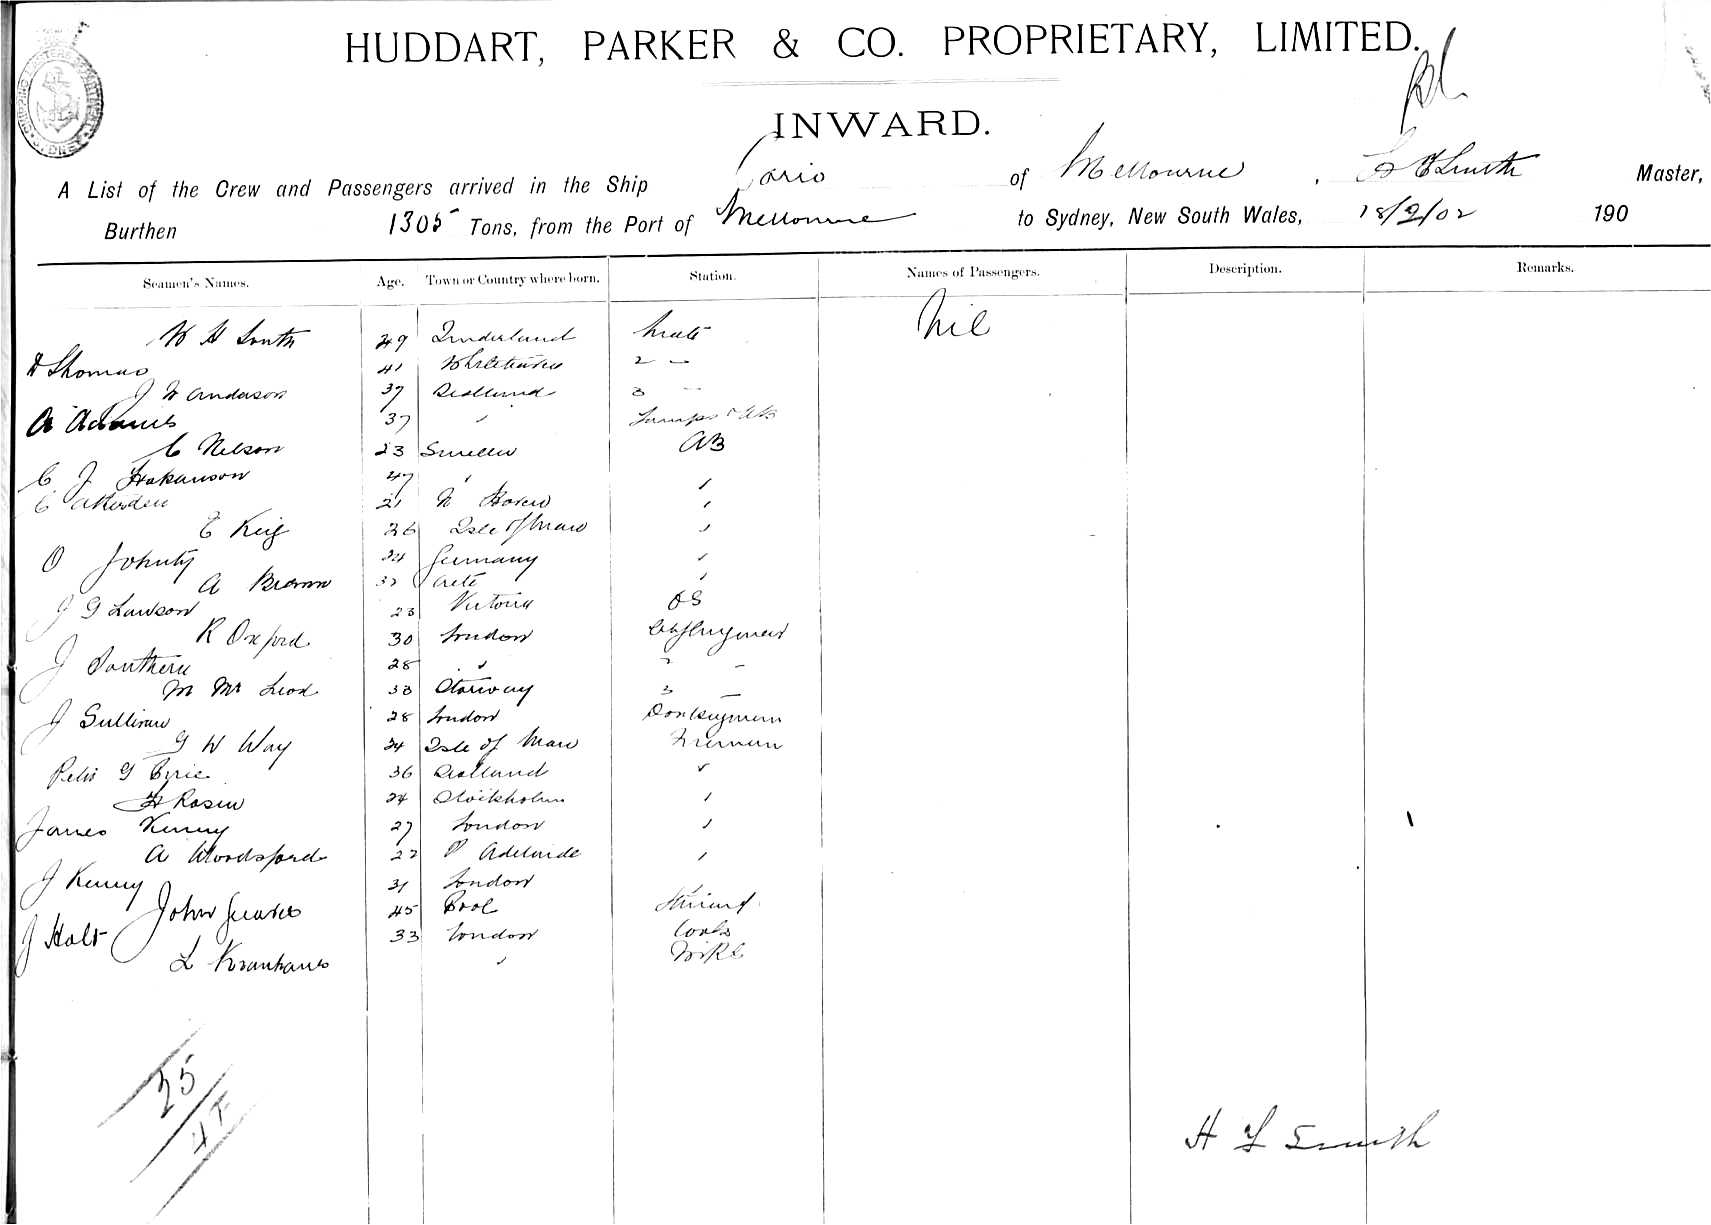 HUDDART, PARKER & CO. PROPRIETARY, LIMITED.
INWARD.
A List of the Crew and Passengers arrived in the Ship Corio of Melbourne, Smith Master,
Burthen 1305 Tons, from the Port of Melbourne to Sydney, New South Wales, 18/2/02 190
Seamen's Names. Age. Town or Country where born. Station. Names of Passengers. Description. Remarks.
W H South 49 Sunderland Mate Nil
Thomas 41 Whitehaven 2 —
J W Anderson 37 Scotland 3 —
A Adams 37 " Lamps & AB
C Nelson 23 Sweden AB
C J Hakanson 47 " "
C 21 "
E Keig 26 Isle of Man "
O 24 Germany "
A Brown 32 Crete "
J G Lawson 23 Victoria OS
R Oxford 30 London
J Southern 28 " " —
M McLeod 33 3 —
J Sullivan 28 London Donkeyman
G W Way 24 Isle of Man Fireman
Peter G 36 Scotland "
H Rosen 24 Stockholm "
James Kenny 27 London "
A Woodsford 22 P Adelaide "
J Kenny 31 London "
John 45 Steward
J Holt 33 London Cook
L "
25
H F Smith